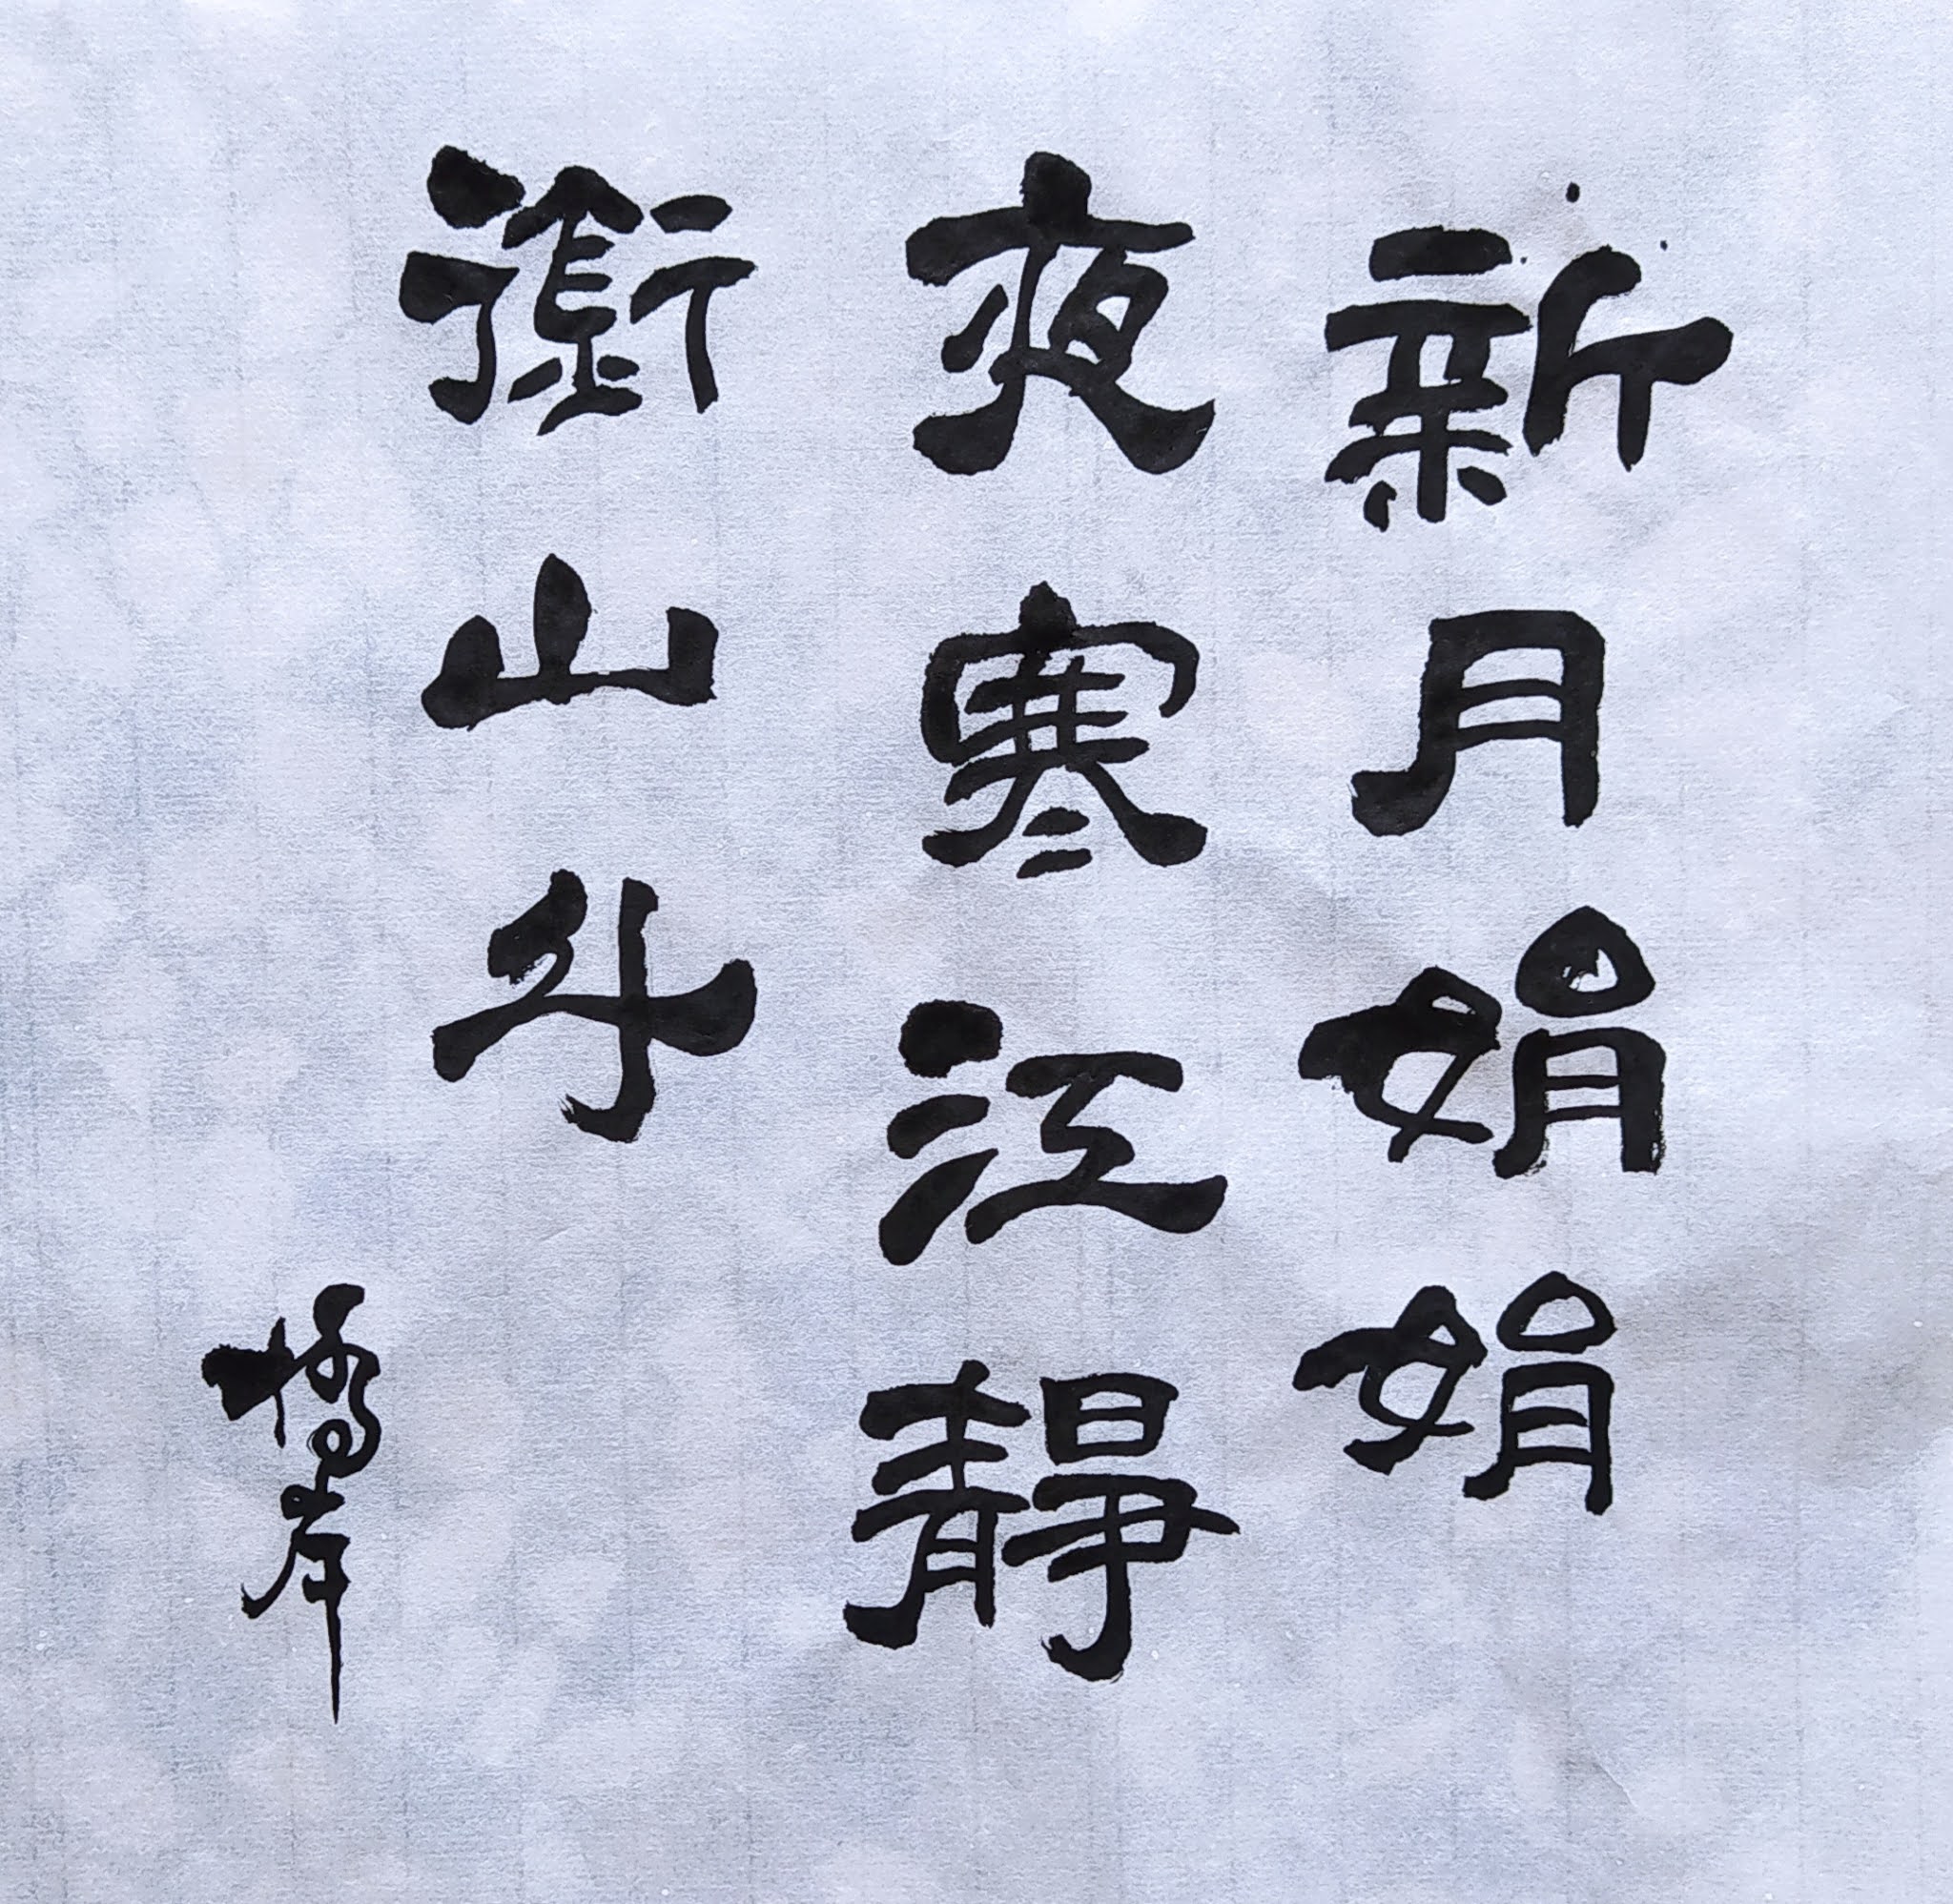 新月娟娟
夜寒江靜
銜山斗
橋岸